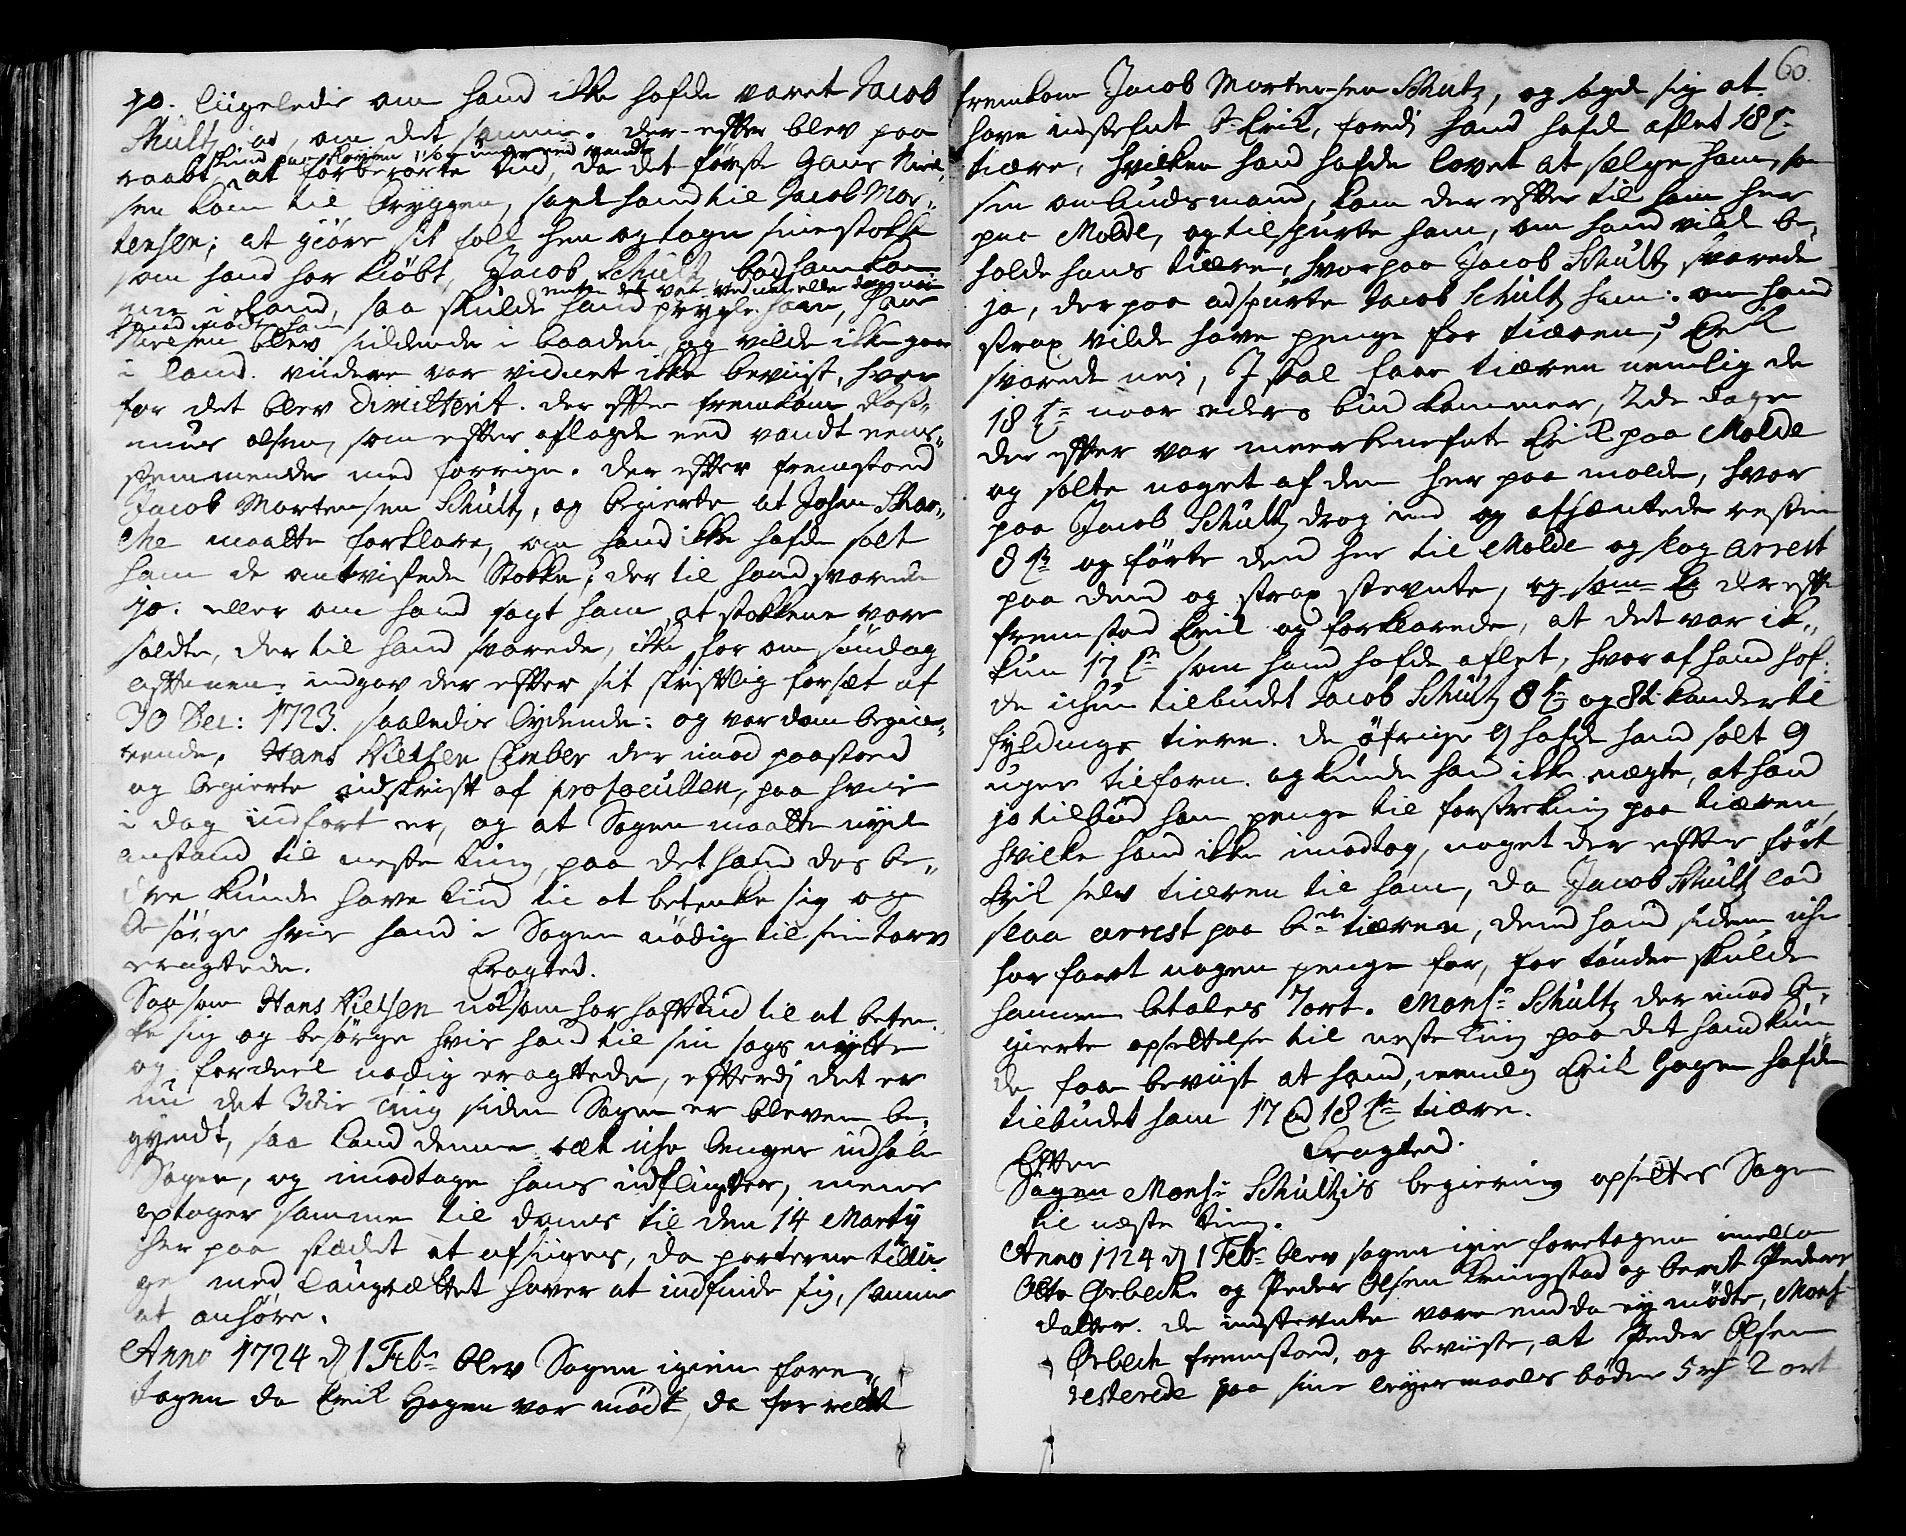 jo. liigeledis om hand ikke hafde varet Jacob
Schultz ad, om det samme. der efter blev paa
raabt, at forberørte tid, da det første Hans Niel„
sen kom til bryggen, sagde hand til Jacob Mor„
tensen; at giøre sit folk hen og tage sine stokke
som hand har kiøbt, Jacob Schultz bad ham kom
me i Land, saa skulde hand prygle ham, Hans
Nielsen blev siddende i baaden og vilde ikke gaae
i land. viidere var vidnet ikke beviist, hvor
for det blev Dimitterit. der efter fremkom Ras„
mus olsen, som efter aflagde eed vandt eens„
stemmende med forrige. der efter fremstoed
Jacob Mortensen Schultz, og begierte at Johan
maatte forklare, om hand ikke hafde solt
ham de omtvistede Stokke, der til hand svarede
jo. eller om hand sagt ham, at stokkene vare
soldte, der til hand svarede, ikke før om søndag
afftenen. indgav der efter sit skriftlig forsæt af
30 Dec: 1723. saaledis lydende: og var dom begie„
rende. Hans Nielsen Cimber der imod paastoed
og begierte udskrift af protocullen, paa hvis
i dag indført er, og at Sagen maatte nyde
anstand til neste ting, paa det hand des be„
dre kunde have tiid til at betenke sig og
besørge hvis hand i Sagen nødig til sin tarv
eragtede. Eragted.
Saasom Hans Nielsen noksom har haft tiid til at beten
ke sig og besørge hvis hand til sin sags nytte
og fordeel nødig eragttede, efterdj det er
nu det 3die ting siden Sagen er bleven be„
gyndt, saa kand denne ræt iche lenger udhale
Sagen, og imodtage hans udflugter, mens
optager samme til doms til den 14 Marty
her paa stædet at afsiiges, da parterne tillii
ge med laugrættet haver at indfinde sig, samme
at anhøre.
Anno 1724 d 1 Febr blev Sagen igien fore„
tagen da Erik Hagen var mødt, da for rette
60.
fremkom Jacob Mortensen Schutz, og sagde sig at
have indstefnt Sr Erik, fordj hand hafde aflet 18 t
tiære, hvilken hand hafde lovet at selge ham, som
sin ombudsmand, kom der efter til ham her
paa Molde, og tilspurte ham, om hand vilde be„
holde hans tiære, hvorpaa Jacob Schultz svarede
ja, der paa adspurte Jacob Schultz ham: om hand
strax vilde have penge for tiæren, Erik
svarede nei, I skal faae tiæren nemlig de
18 t naar eders bud kommer, 2de dage
der efter var meerbenefnte Erik paa Molde
og solte noget af den her paa molde, hvor
paa Jacob Schultz drog ind og afhæntede resten
8 t og førte dend her til Molde og slog arrest
paa dend og strax stevnte, der efter
fremstod Erik og forklarede, at det var ik„
kun 17 t som hand hafde aflet, hvor af hand haf„
de iche tilbudet Jacob Schultz 8 t og 8t: kander til
fyldings tiere. de øfrige 9 hafde hand solt 9
uger tilforn. og kunde hand ikke nægte, at hand
jo tilbød ham penge til forstrekning paa tiæren,
hvilke hand ikke imodtog, noget der efter ført
Erik selv tiæren til ham, da Jacob Schultz lod
slaa arrest paa bete tiæren, dend hand siden iche
har faaet nogen penge for, for tønden skulde
hannem betales 7 ort. Monsr Schultz der imod be„
gierte opsettelse til neste ting paa det hand kun
de faae beviist at hand, nemlig Erik Hagen hafde
tilbudet ham 17 a 18 t tiære.
Eragted.
Efter
Sagen Monsr Schultzis begiering opsettes Sagen
til næste ting.
Anno 1724 d 1 Febr blev sagen igien foretagen imellem
Otto Ørbech og Peder Olsen Kringstad og berit Peders
datter. de indstevnte vare endda ey mødte, Monsr
Ørbech fremstoed, og beviiste, at Peder Olsen
resterede paa sine leyermaals bøder 5 rd 2 ort